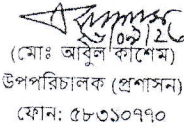 (মোঃ আবুল কাশেম)
উপপরিচালক (প্রশাসন)
ফোন: ৫৮৩১০৭৭০